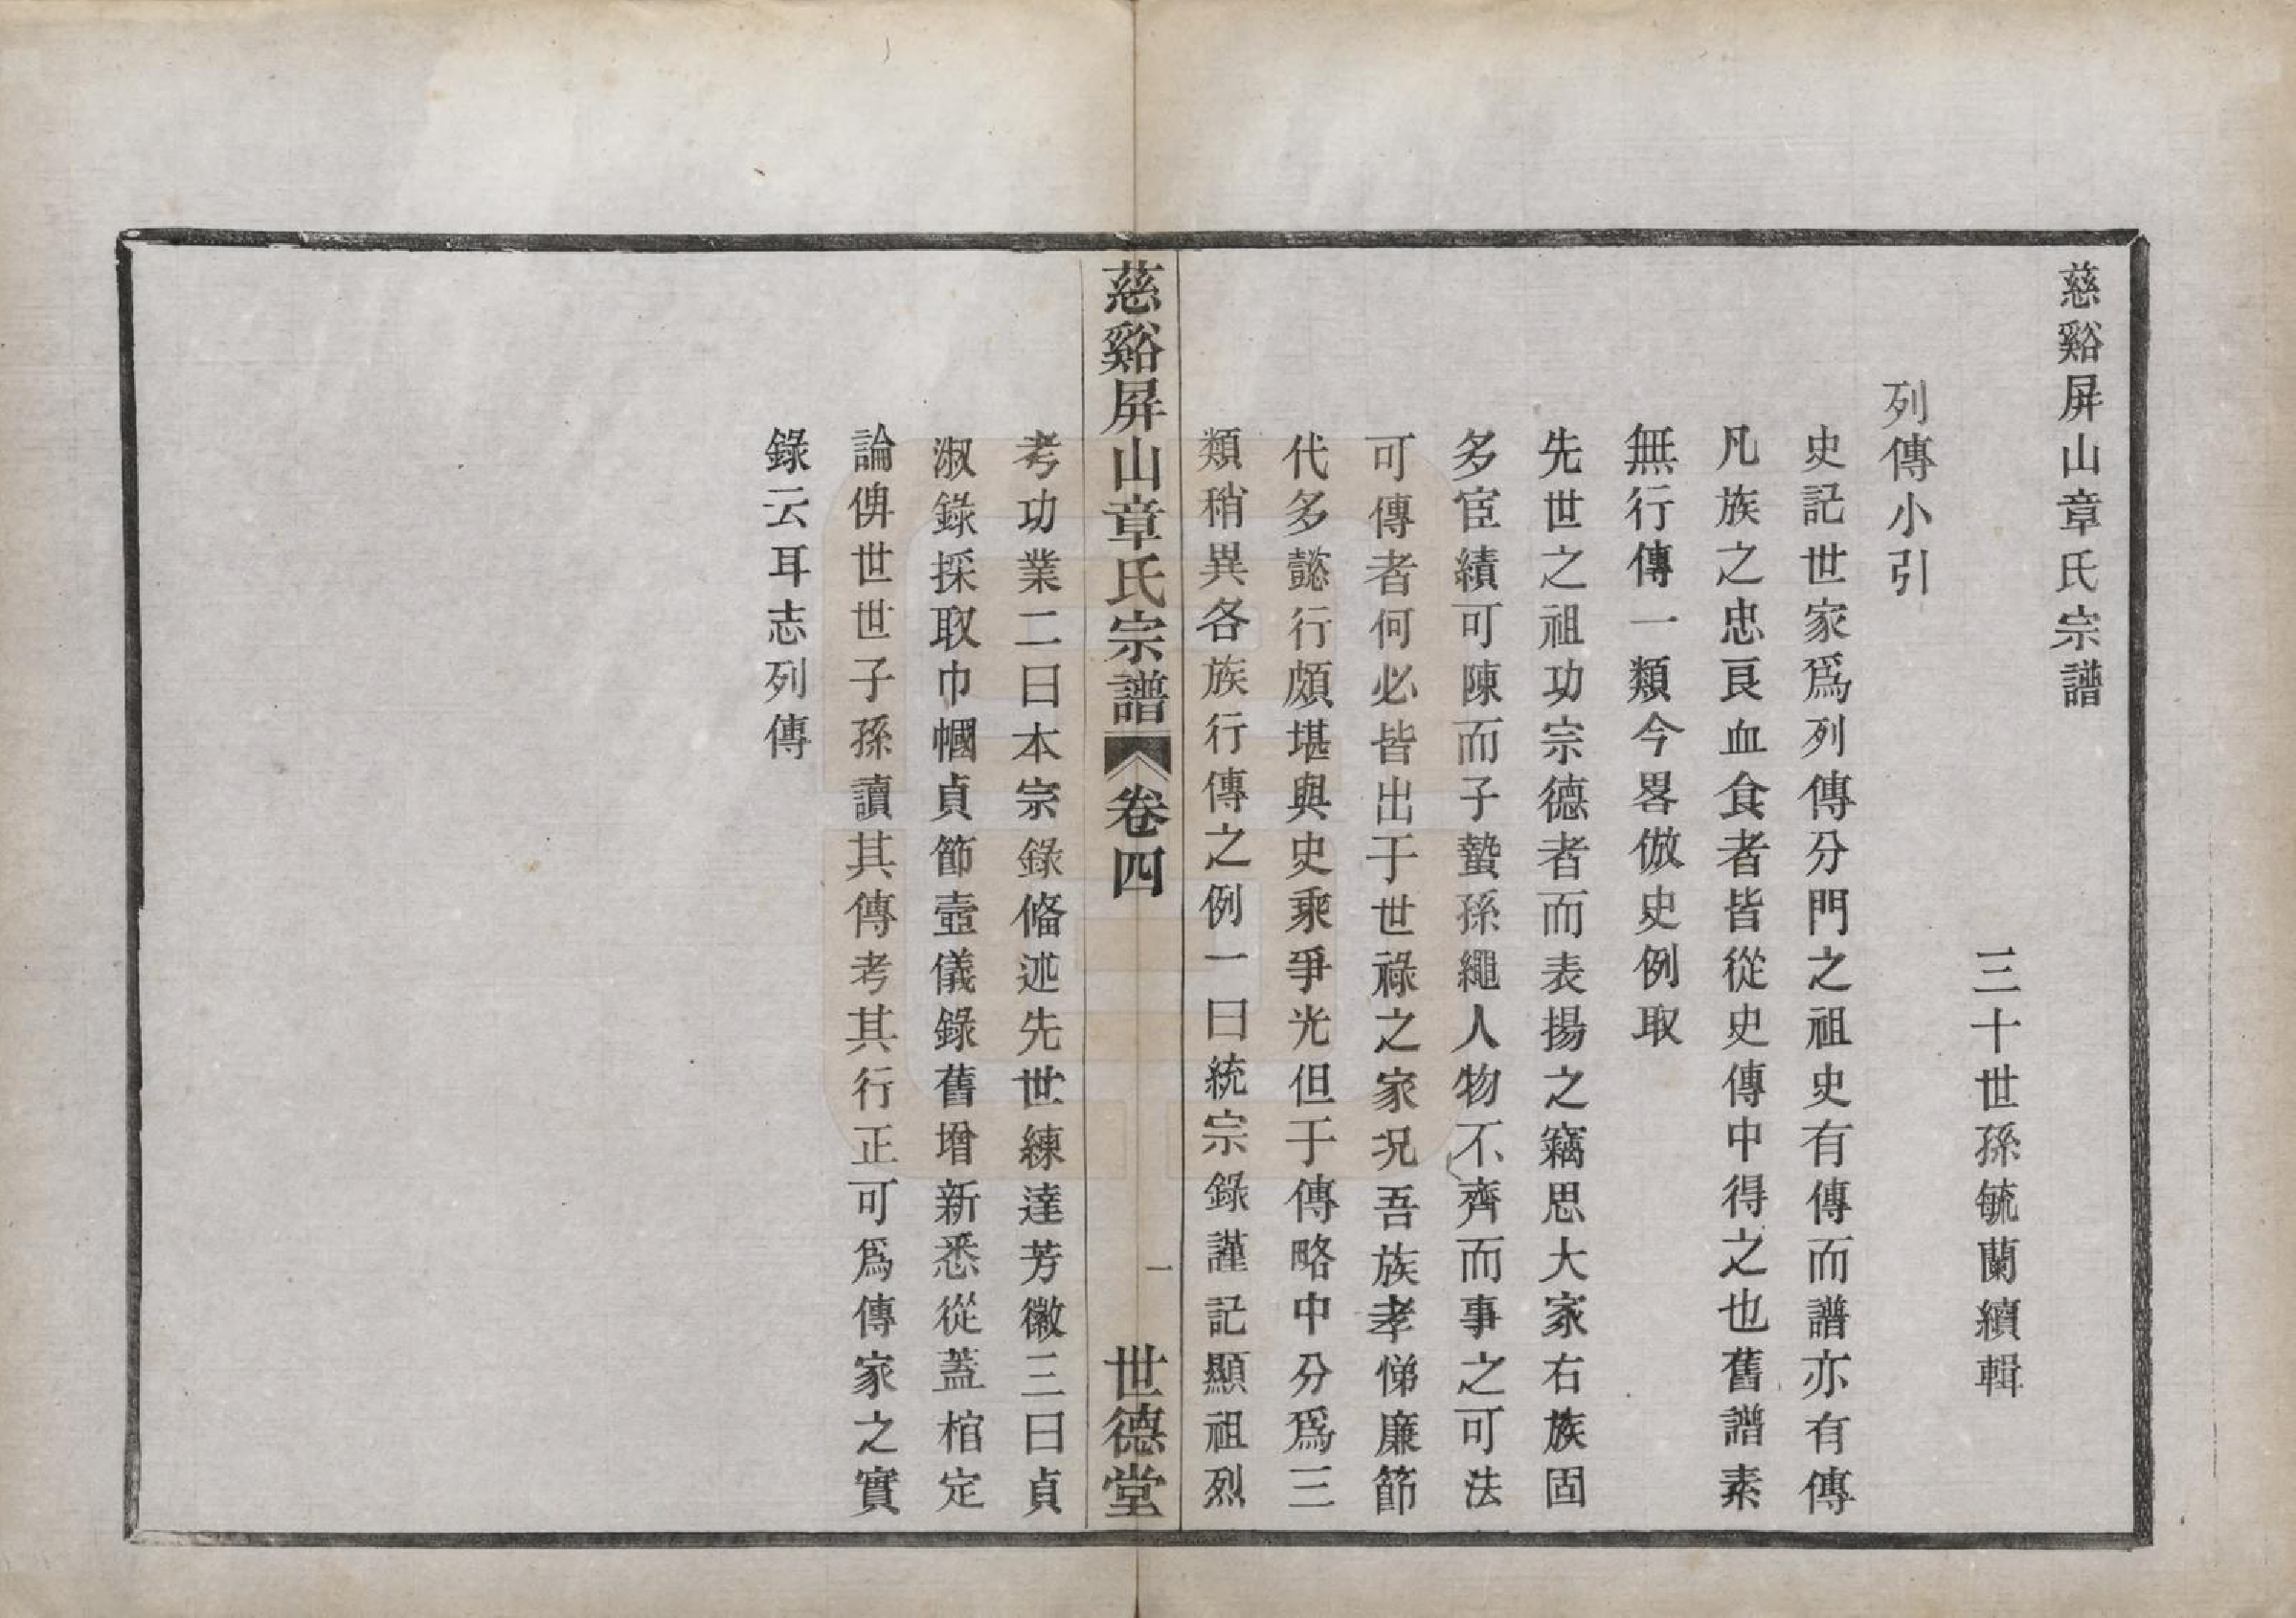 慈谿屏山章氏宗譜
三十世孫毓蘭續輯
列傳小引
史記世家爲列傳分門之祖史有傳而譜亦有傳
凡族之忠良血食者皆從史傳中得之也舊譜素
無行傳一類今畧倣史例取
先世之祖功宗德者而表揚之竊思大家右族固
多宦績可陳而子蟄孫繩人物不齊而事之可法
可傳者何必皆出于世祿之家況吾族孝悌廉節
代多懿行頗堪與史乘爭光但于傳略中分爲三
類稍異各族行傳之例一曰統宗錄謹記顯祖烈
慈谿屏山章氏宗譜 卷四 一 世德堂
考功業二曰本宗錄俻述先世練達芳徽三曰貞
淑錄採取巾幗貞節壼儀錄舊增新悉從蓋棺定
論俾世世子孫讀其傳考其行正可爲傳家之實
錄云耳志列傳